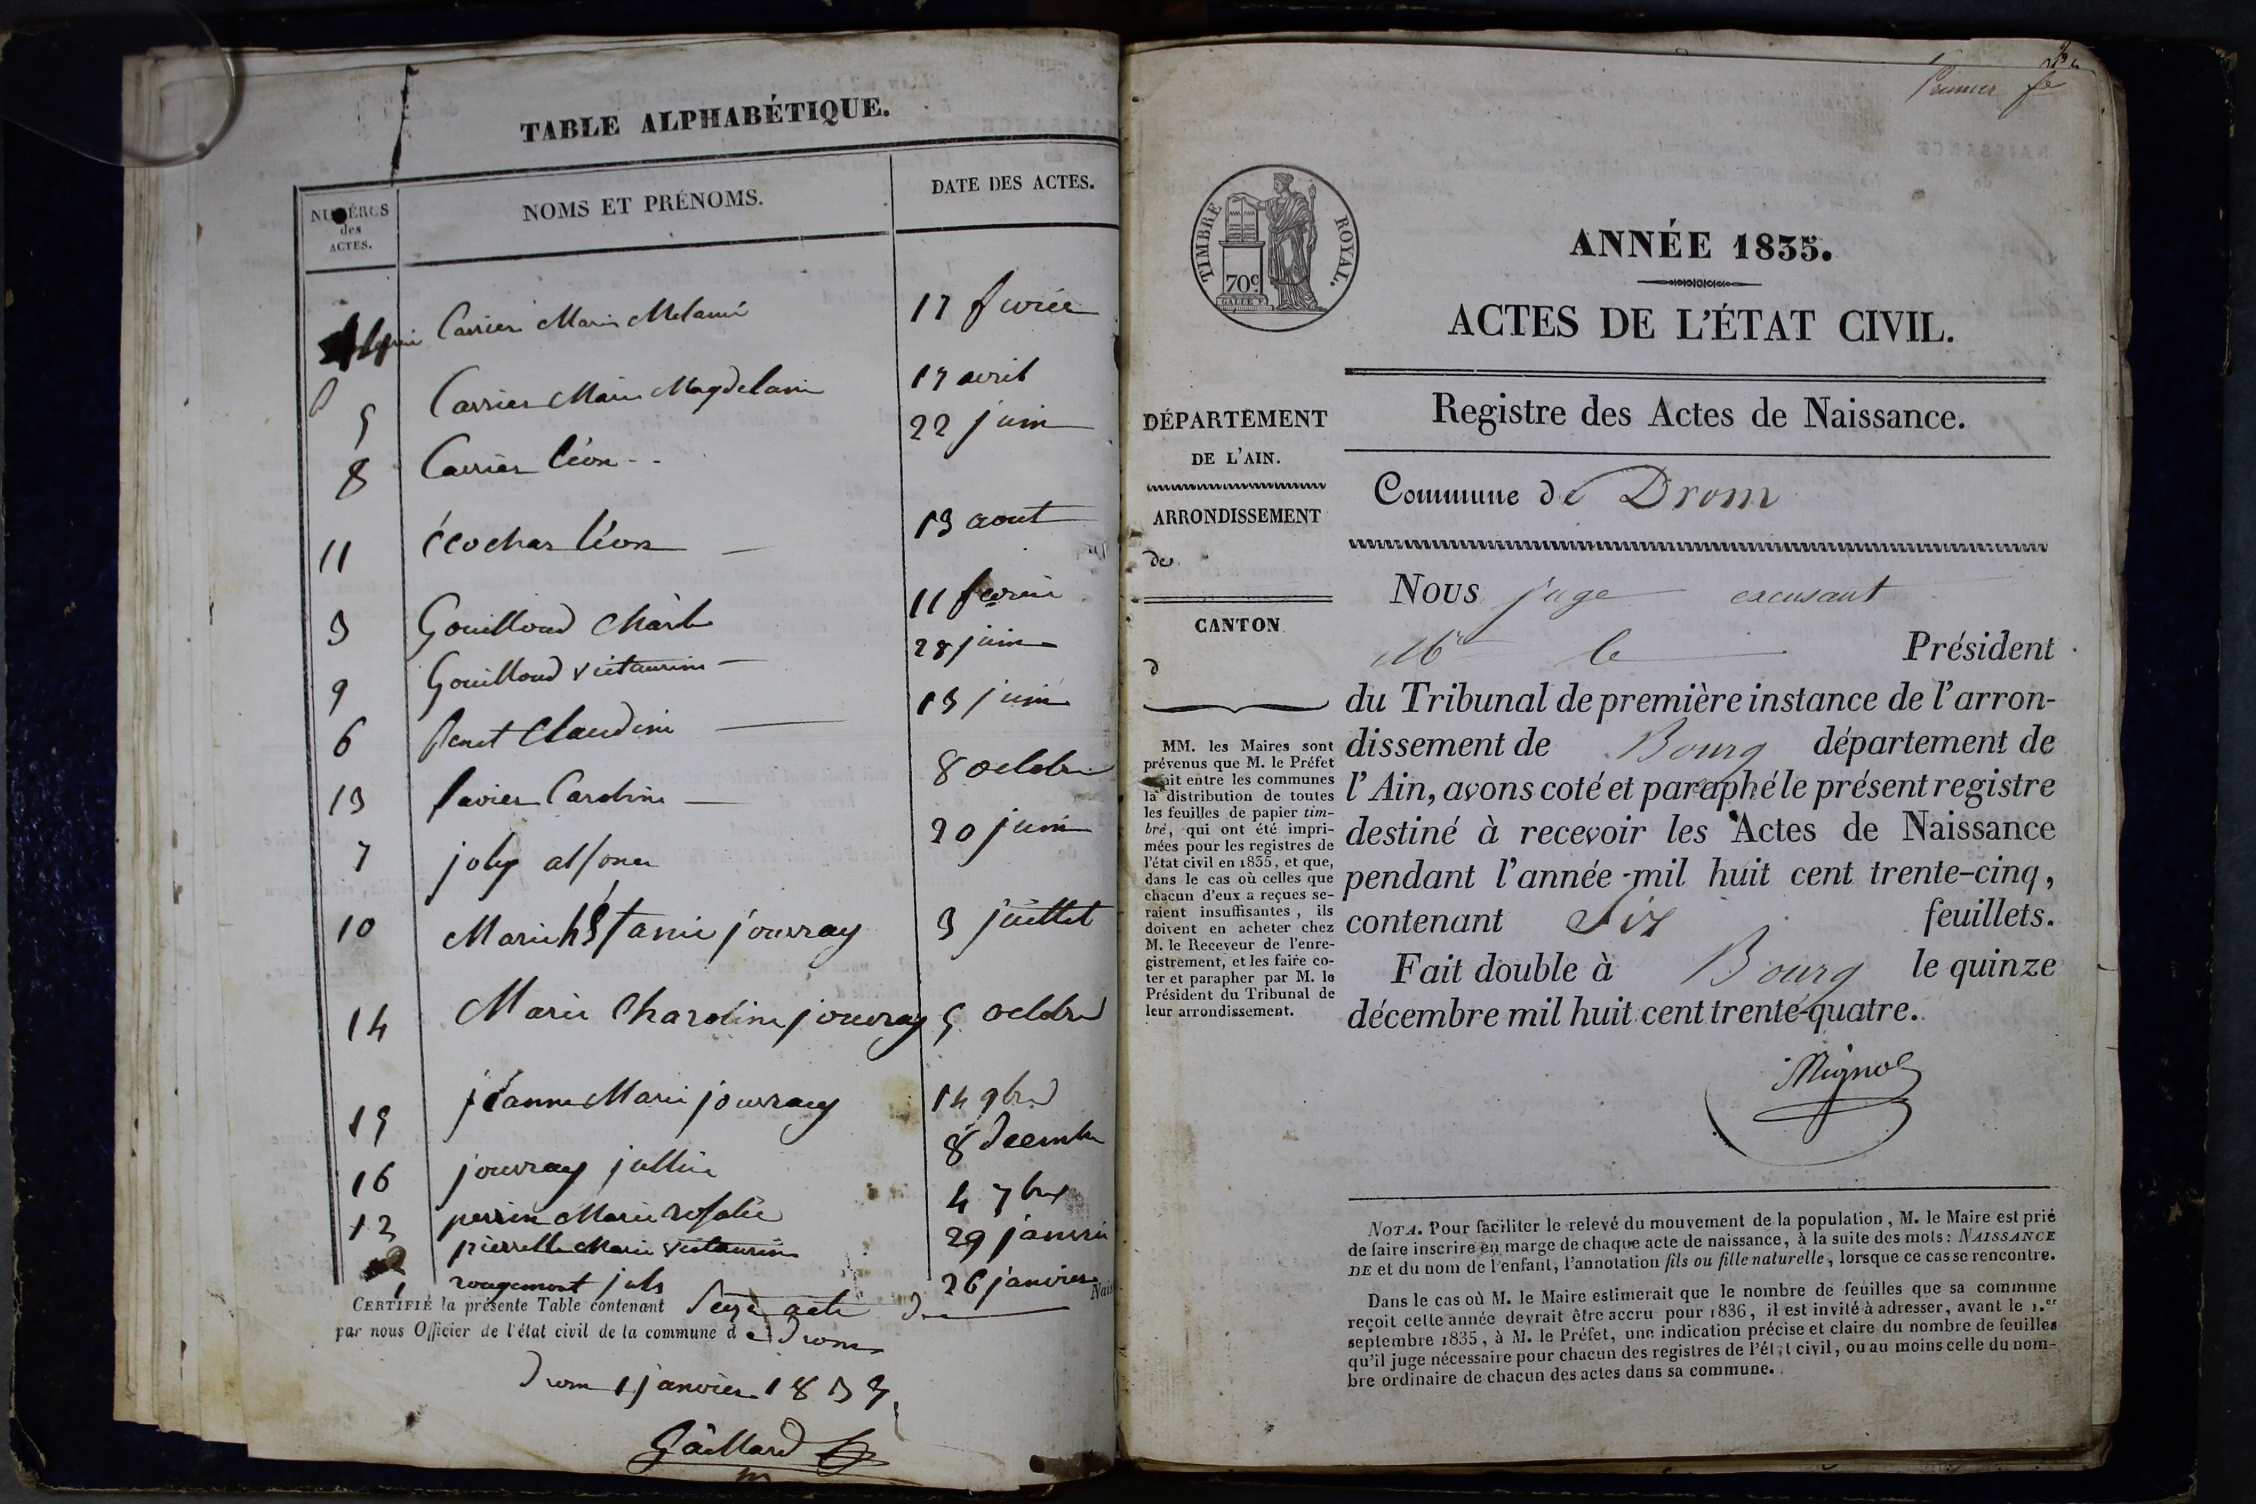 TABLE ALPHABÉTIQUE.
NUMÉROS
des
ACTES.
NOMS ET PRÉNOMS.
DATE DES ACTES.
Carrier Marie Melanie 17 fevrier
5 Carrier Marie Magdelaine 17 avril
8 Carrier léon 22 juin
11 écochar léon 13 aout
3 Gouilloud Charle 11 fevrier
9 Gouilloud victaurine 28 juin
6 Penet Claudine 13 juin
13 favier Caroline 8 octobre
7 joly alfonce 20 juin
10 Marie jouvray 3 juillet
14 Marie Charoline jouvray 5 octobre
15 jéanne Marie jouvray 14 9bre
16 jouvray jullie 8 décembre
12 perrin Marie rosalie 4 7bre
2 pierrelle Marie victaurine 29 janvier
1 rougemont jules 26 janvier
CERTIFIÉ la présente Table contenant Seize acte de Nais
par nous Officier de l'état civil de la commune d e Drom
Drom 1 janvier 1835
Gaillard
Premier
TIMBRE ROYAL.
70c
ANNÉE 1835.
ACTES DE L'ÉTAT CIVIL.
Registre des Actes de Naissance.
Commune de Drom
DÉPARTEMENT
DE L'AIN.
ARRONDISSEMENT
de
CANTON
d
MM. les Maires sont
prévenus que M. le Préfet
fait entre les communes
la distribution de toutes
les feuilles de papier tim-
bré, qui ont été impri-
mées pour les registres de
l'état civil en 1835, et que,
dans le cas où celles que
chacun d'eux a reçues se-
raient insuffisantes, ils
doivent en acheter chez
M. le Receveur de l'enre-
gistrement, et les faire co-
ter et parapher par M. le
Président du Tribunal de
leur arrondissement.
Nous juge excusant
Mr le Président
du Tribunal de première instance de l'arron-
dissement de Bourg département de
l'Ain, avons coté et paraphé le présent registre
destiné à recevoir les Actes de Naissance
pendant l'année mil huit cent trente-cinq,
contenant Six feuillets.
Fait double à Bourg le quinze
décembre mil huit cent trente-quatre.
NOTA. Pour faciliter le relevé du mouvement de la population, M. le Maire est prié
de faire inscrire en marge de chaque acte de naissance, à la suite des mots: NAISSANCE
DE et du nom de l'enfant, l'annotation fils ou fille naturelle, lorsque ce cas se rencontre.
Dans le cas où M. le Maire estimerait que le nombre de feuilles que sa commune
reçoit cette année devrait être accru pour 1836, il est invité à adresser, avant le 1.er
septembre 1835, à M. le Préfet, une indication précise et claire du nombre de feuilles
qu'il juge nécessaire pour chacun des registres de l'état civil, ou au moins celle du nom-
bre ordinaire de chacun des actes dans sa commune.